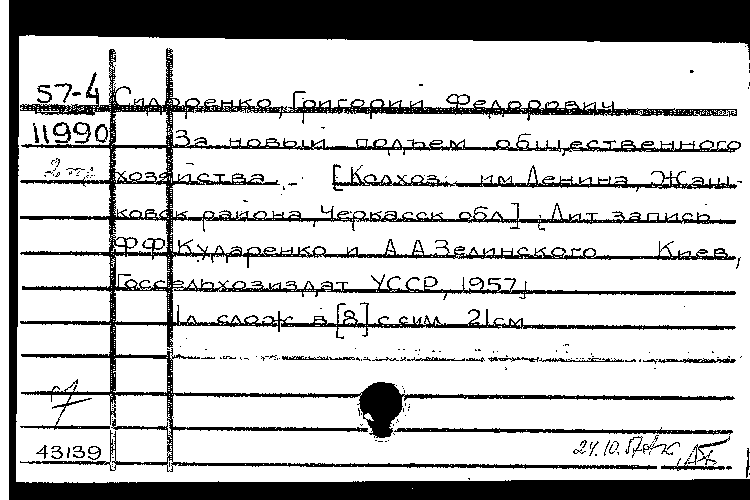 57-4 Сидоренко, Григорий Федорович
11990 За новый подъем общественного
хозяйства. - [Колхоз им Ленина, Жаш-
ковск района, Черкасск обл]. [Лит запись
Ф Ф Кударенко и А.А Зелинского Киев,
Госсельхозиздат УССР, 1957]
1 л слож в [8] с с илл 21 см
43139 24.10.57